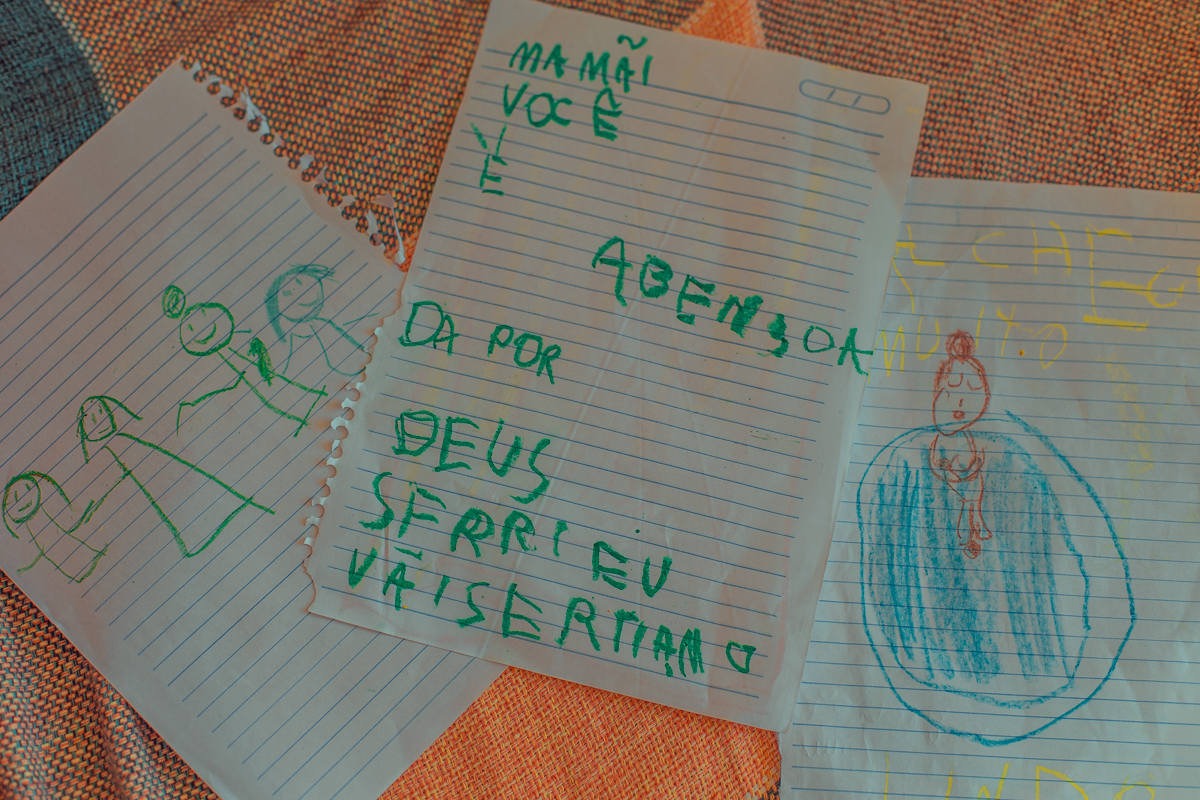 MAMÃI
VOCÊ
É
ABENSOA
DA POR
DEUS
SERRI EU
VÃISERTIAMO
MUITO
LINDO